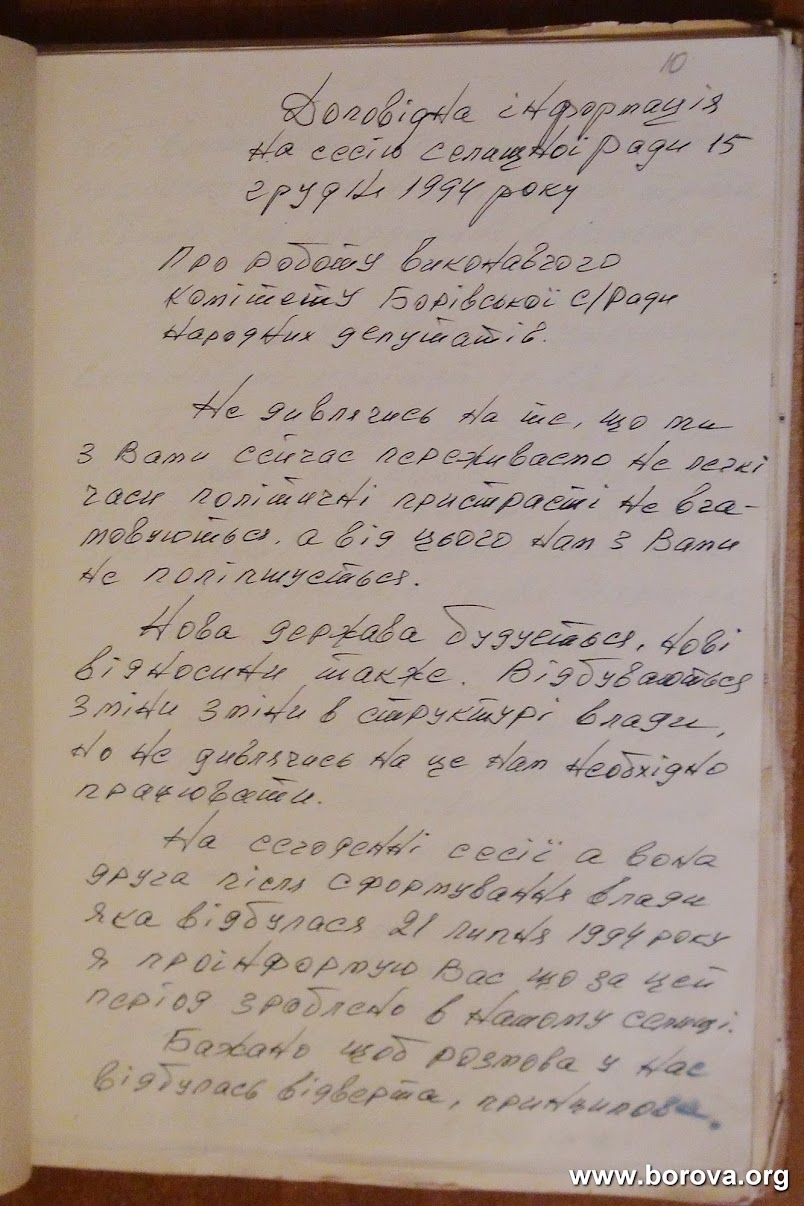 10
Доповідна інформація
на сесію селищної ради 15
грудня 1994 року
Про роботу виконавчого
комітету Борівської с/ради
народних депутатів.
Не дивлячись на те, що ми
з Вами сейчас переживаємо не легкі
часи політичні пристрасті не вга-
мовуються, а від цього нам з Вами
не поліпшується.
Нова держава будується, нові
відносини также. Відбуваються
зміни зміни в структурі влади,
но не дивлячись на це нам необхідно
працювати.
На сегоденні сесії а вона
друга після сформування влади
яка відбулася 21 липня 1994 року
я проінформую Вас що за цей
період зроблено в нашому селищі.
Бажано щоб розмова у нас
відбулась відверта, принципова,
www.borova.org